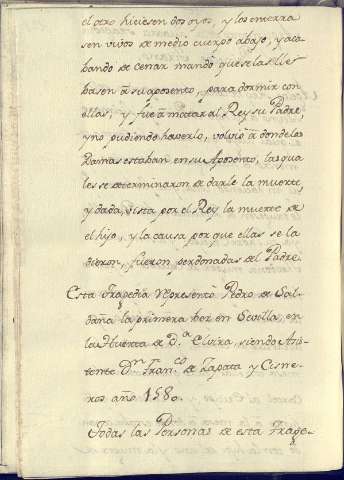 el otro hiciesen dos oyos, y los enterra
sen vivos de medio cuerpo abajo, y aca
bando de cenar mandó que se las lle
basen a su aposento, para dormir con
ellas, y fue a matar al Rey su Padre,
y no pudiendo hacerlo, volvio a donde las
Damas estaban en su Aposento, las qua
les se determinaron de darle la muerte,
y dada, vista por el Rey la muerte de
el hijo, y la causa por que ellas se la
dieron, fueron perdonadas del Padre.
Esta Tragedia representó Pedro de Sal
daña la primera bez en Sevilla, en
la Huerta de D.ª Elvira, siendo Asis
tente D.n Fran.co de Zapata y Cisne
ros año 1580.
Todas las Personas de esta Trage